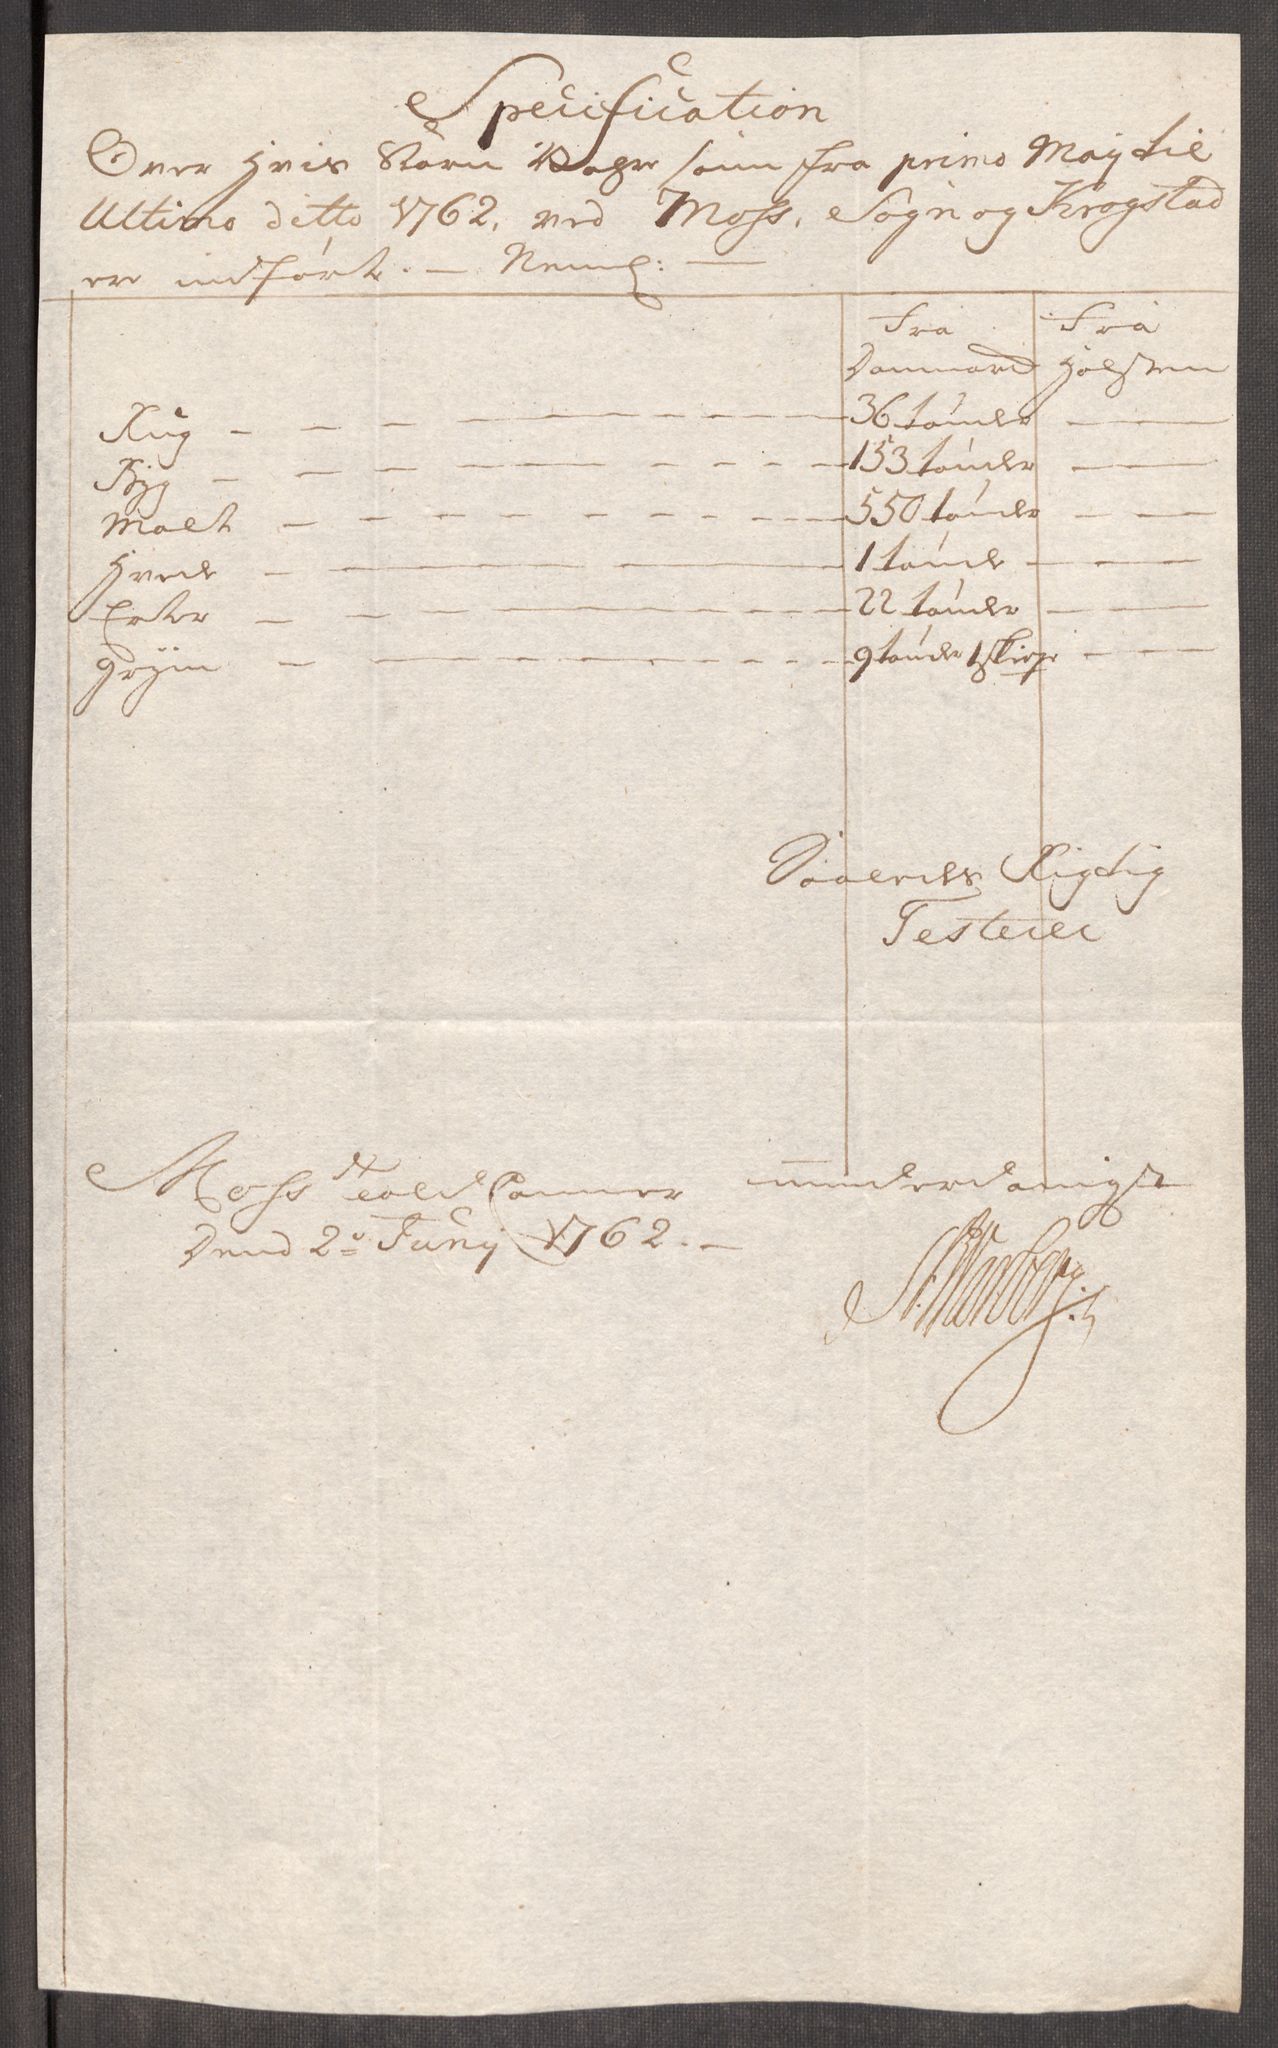 Specification
Over hvis Korn Vahre som fra primo Maÿ til
Ultimo ditto 1762, ved Moss, Sogn og Krogstad
er indført. — Neml: —
Fra Fra
Danmarck Holsten
Rug - - - 36 tønder - -
Byg - - - 153 tønder - -
Malt - - - 550 tønder - -
Hvede - - - 1 tønde - -
Erter - - - 22 tønder - -
Grÿn - - - 9 tønder 1 skiepe - -
Saaledes Rigtig
Testerer
Moss Told Cammer underdanigst
Dend 2de Junÿ 1762. —